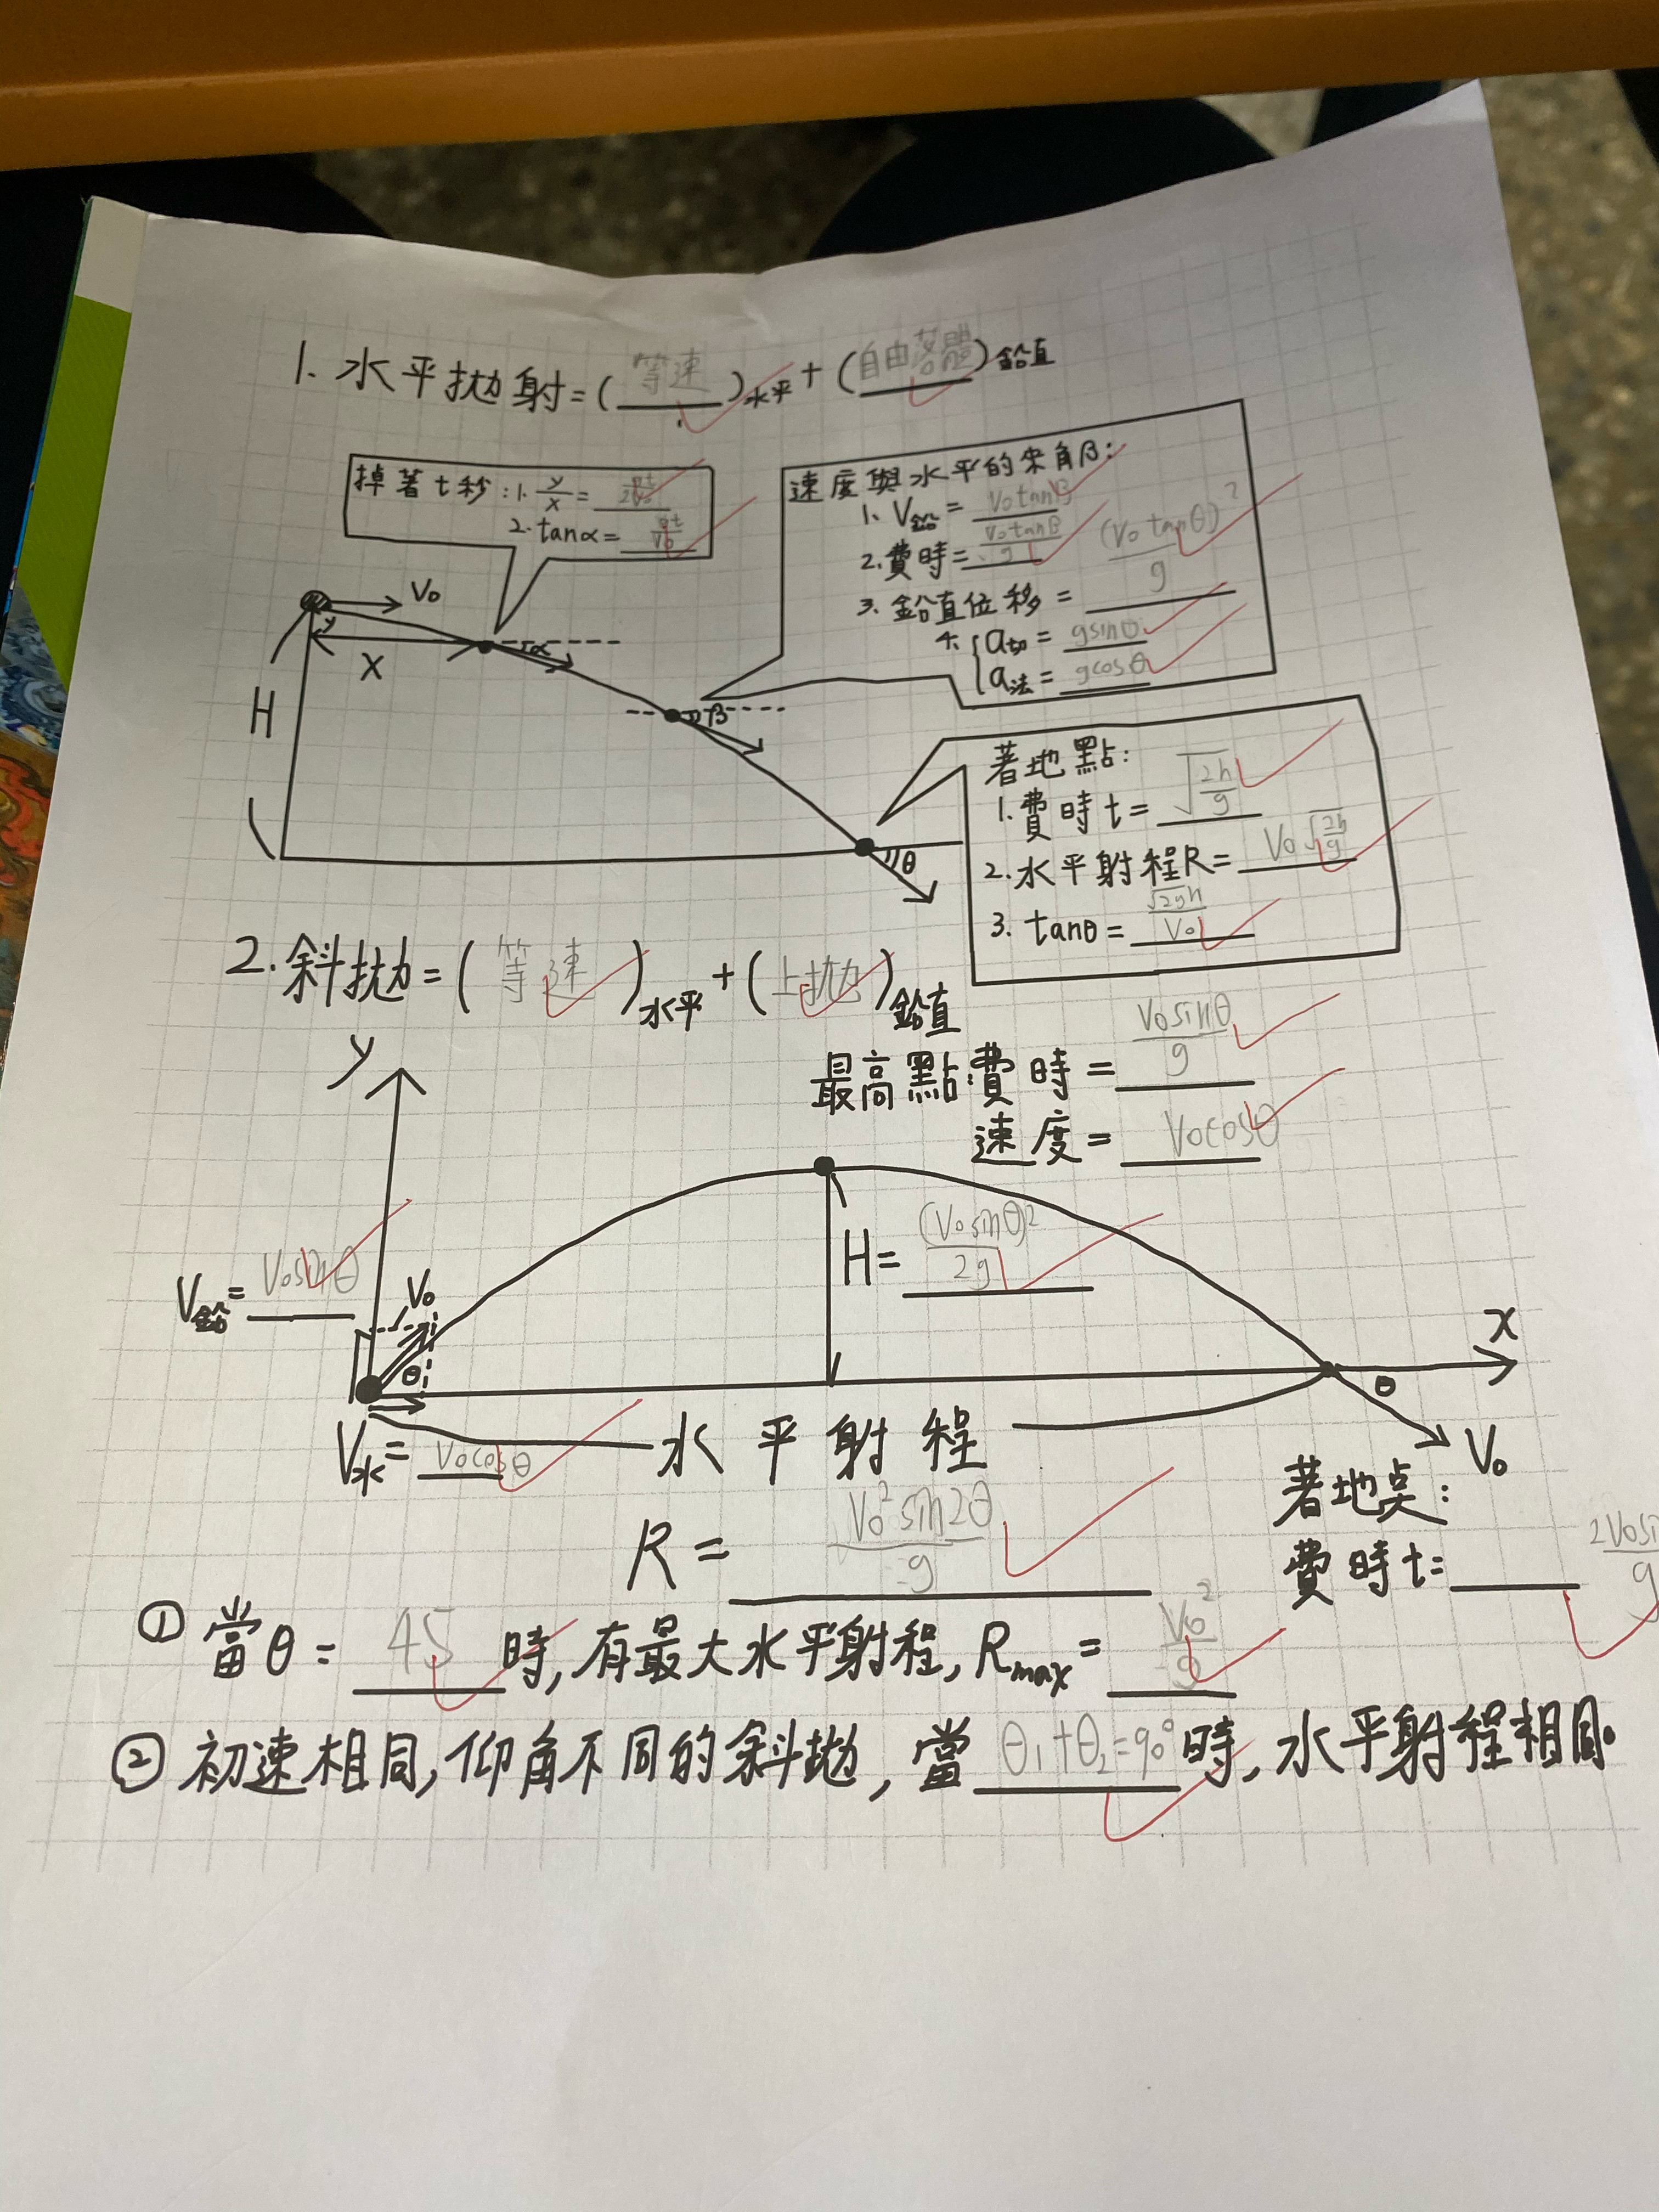 1. 水平拋射=(等速)水平+(自由落體)鉛直
掉著t秒:1. y/x = gt/2V₀
2. tanα= gt/V₀
速度與水平的夾角β:
1. V鉛= V₀tanβ
2. 費時= V₀tanβ/g
3. 鉛直位移= (V₀tanθ)²/g
4. { a切= gsinθ
a法= gcosθ
V₀
y
X
α
H
β
θ
著地點:
1. 費時t= √(2h/g)
2. 水平射程R= V₀√(2h/g)
3. tanθ= √2gh/V₀
2. 斜拋=(等速)水平+(上拋)鉛直
最高點:費時= V₀sinθ/g
速度= V₀cosθ
y
H= (V₀sinθ)²/2g
V鉛= V₀sinθ
V₀
θ
X
θ
V₀
V水= V₀cosθ
水平射程
R= V₀²sin2θ/g
著地点:
費時t= 2V₀si/g
① 當θ= 45 時,有最大水平射程,Rmax= V₀²/g
② 初速相同,仰角不同的斜拋,當θ₁+θ₂=90°時,水平射程相同.